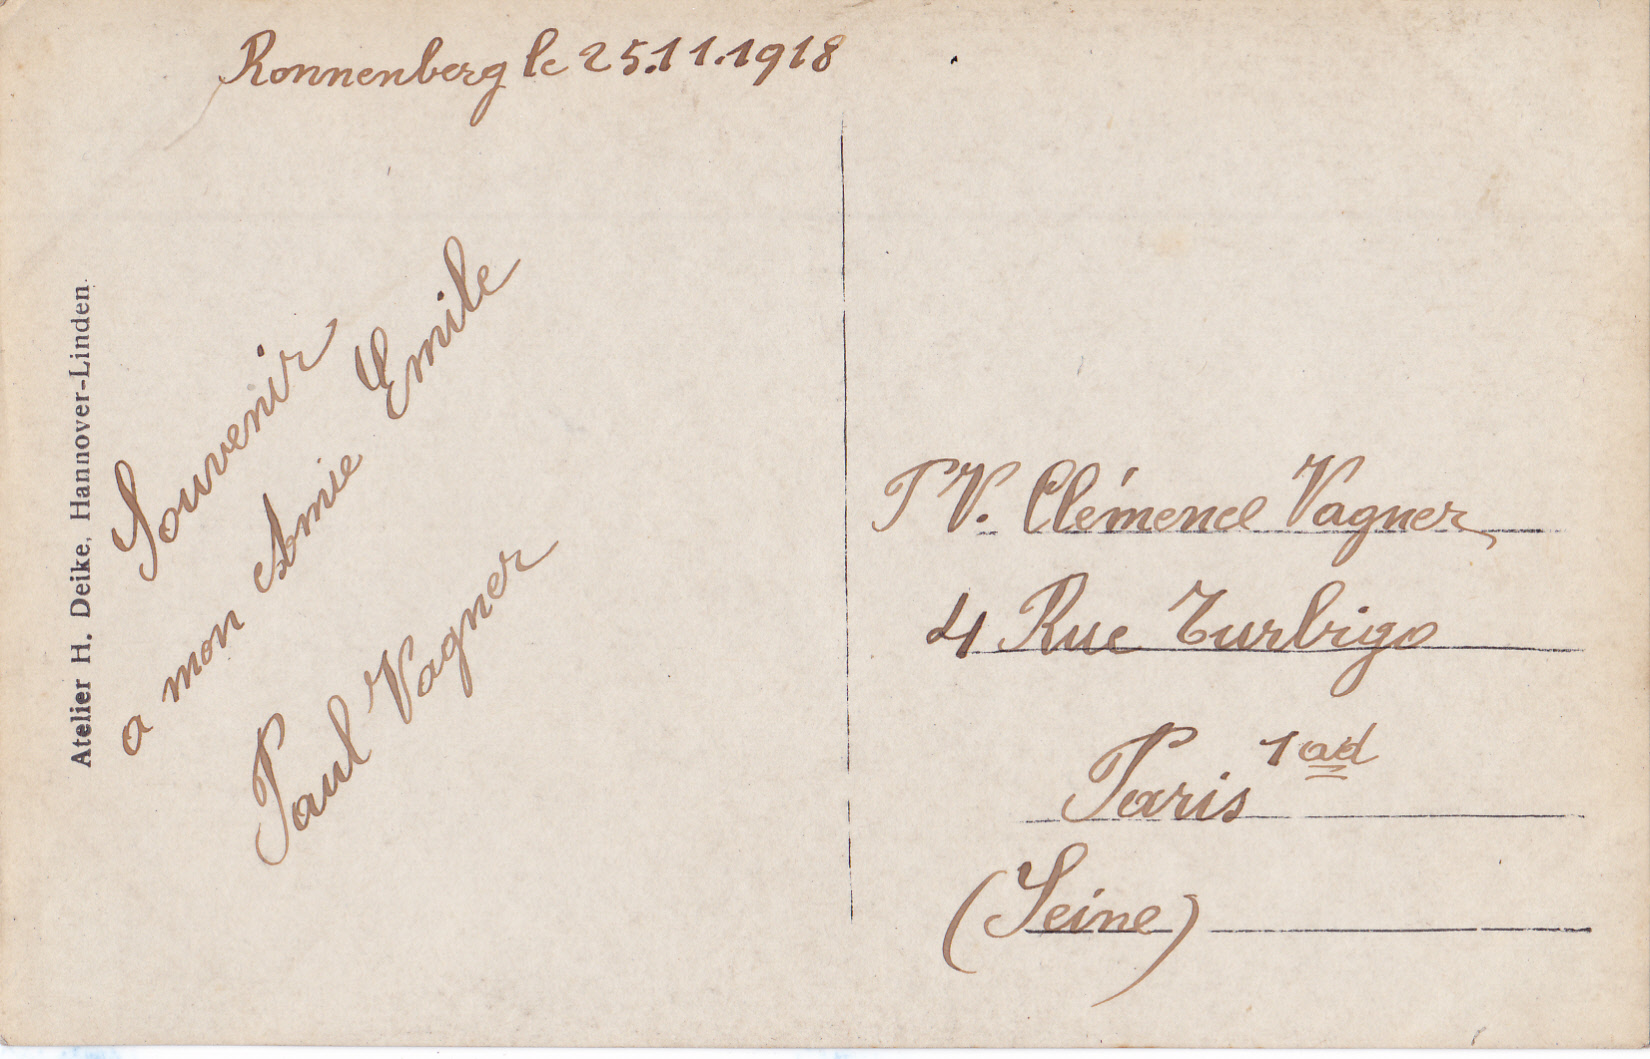 Ronnenberg le 25.11.1918
Atelier H. Deike, Hannover-Linden.
Souvenir
a mon Amie Emile
Paul Vagner
P V. Clémence Vagner
4 Rue Turbigo
Paris 1 ad
(Seine)